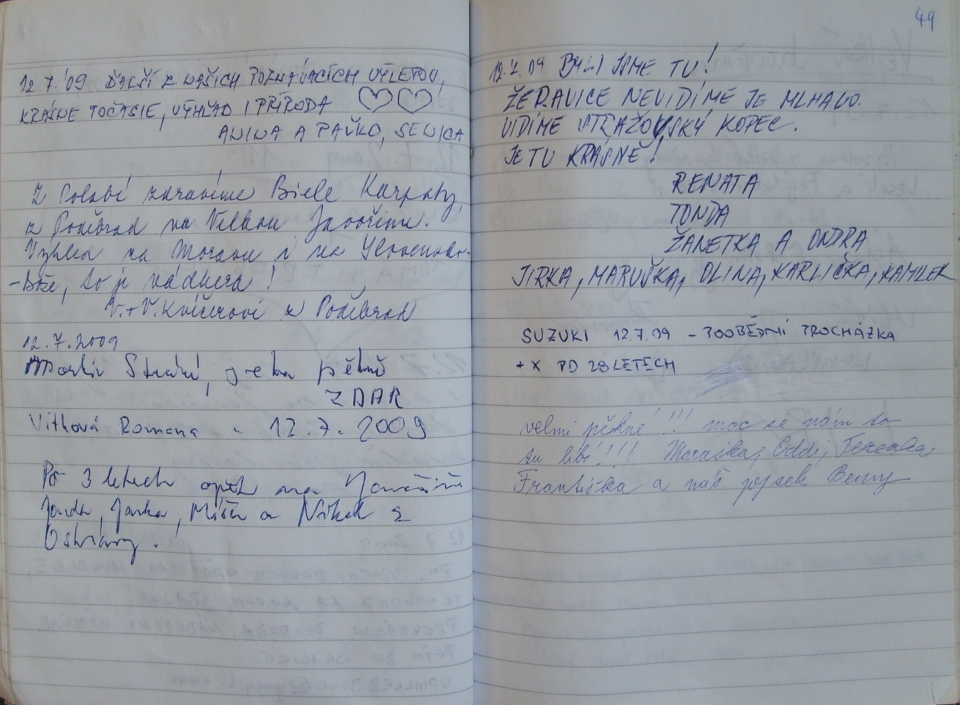 12.7.'09 ĎALŠÍ Z NAŠICH POZNÁVACÍCH VÝLETOV,
KRÁSNE POČASIE, VÝHĽAD I PRÍRODA
ANINA A PAĽKO, SENICA
Z Polabí zdravíme Bíelé Karpaty,
z Poděbrad na Velkou Javořinu.
Výhled na Moravu i na Slovensko
-bože, to je nádhera!
V.+V. z Poděbrad
12.7.2009
Martin, je tu pěkně
ZDAR
Vítková Romana - 12.7.2009
Po 3 letech opět na Javořině
Jarda, Jarka, Míša a z
Ostravy.
49
12.7.09 BYLI JSME TU!
ŽERAVICE NEVIDÍME JE MLHAVO.
VIDÍME STRAŽOVSKÝ KOPEC.
JE TU KRÁSNĚ!
RENATA
TONDA
ŽANETKA A ONDRA
JIRKA, MARUŠKA, OLINA, KARLIČKA, KAMILEK
SUZUKI 12.7.09 - POOBĚDNÍ PROCHÁZKA
+ X PO 28 LETECH
velmi pěkné!!! moc se nám to
tu líbí!!! Terezka,
Františka a náš pejsek Benny